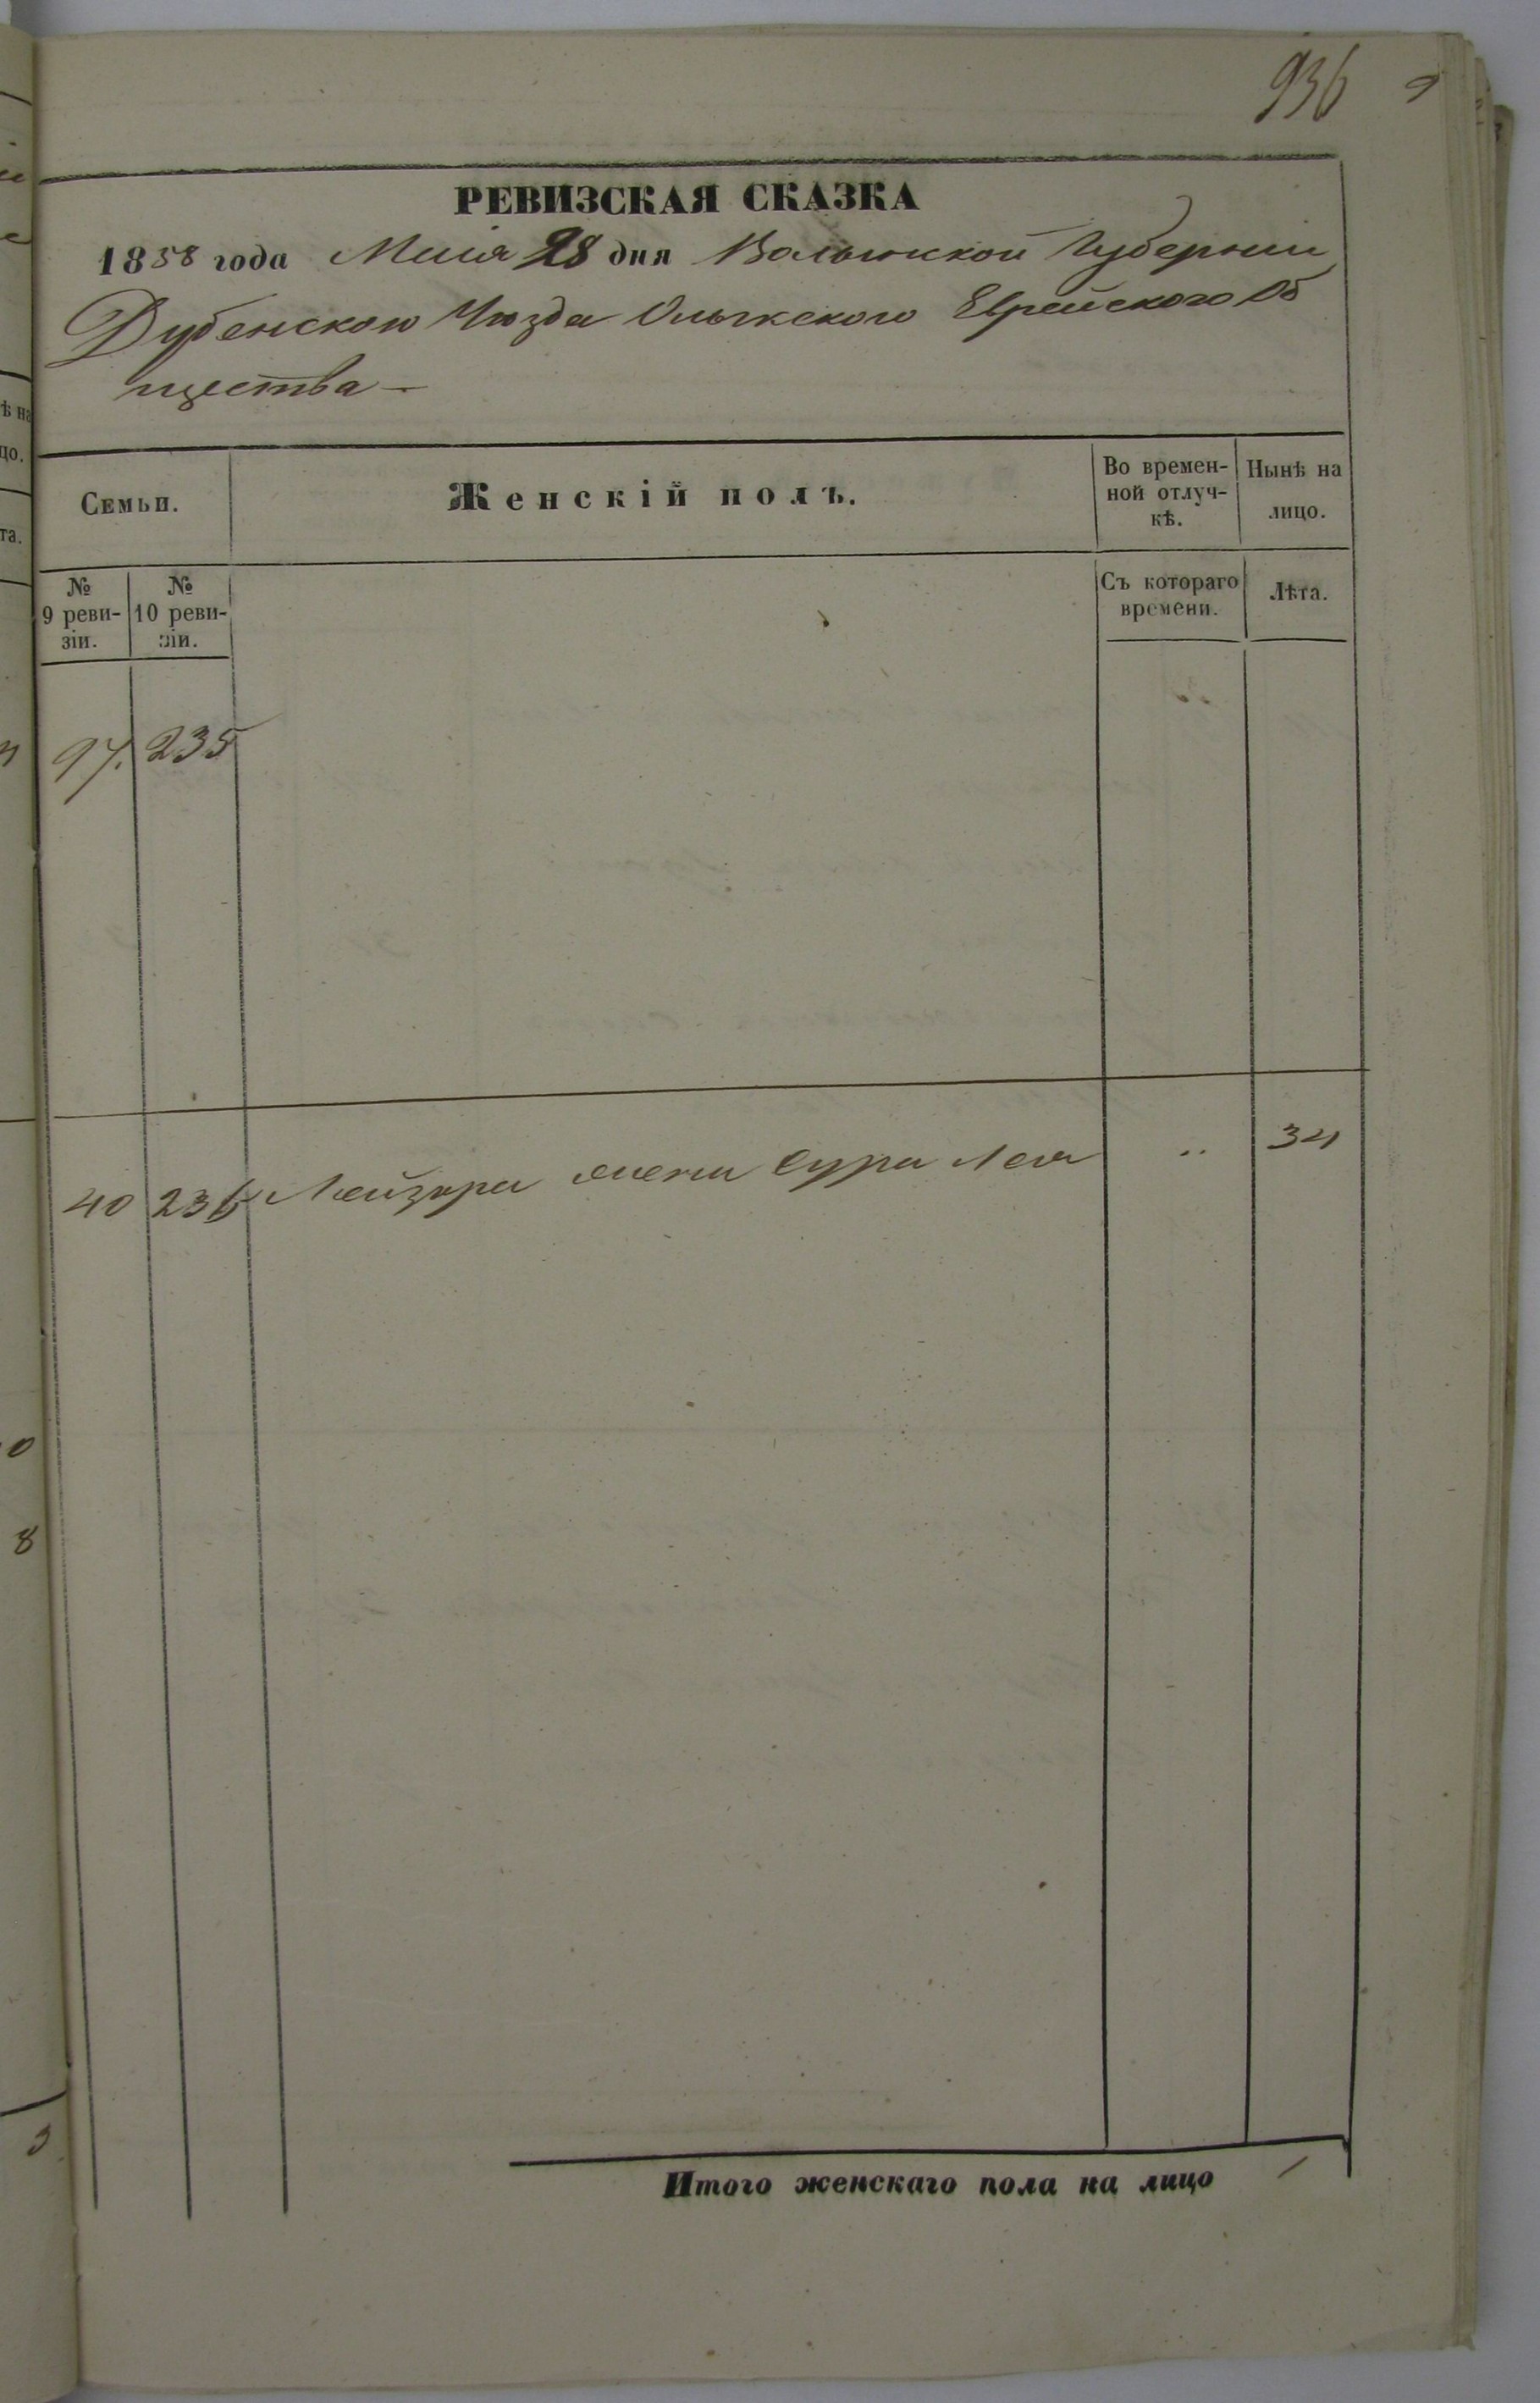 936
РЕВИЗСКАЯ СКАЗКА
1858 года Маія 28 дня Волынской Губерніи
Дубенского Уезда Олыкского Еврейского Об
щества —
Семьи.
Женскій полъ.
Во времен-
ной отлуч-
кѣ.
Нынѣ на
лицо.
№
9 реви-
зіи.
№
10 реви-
зіи.
Съ котораго
времени.
Лѣта.
97. 235
40 236 Лейзора жена Сура Лея " 34
Итого женскаго пола на лицо 1